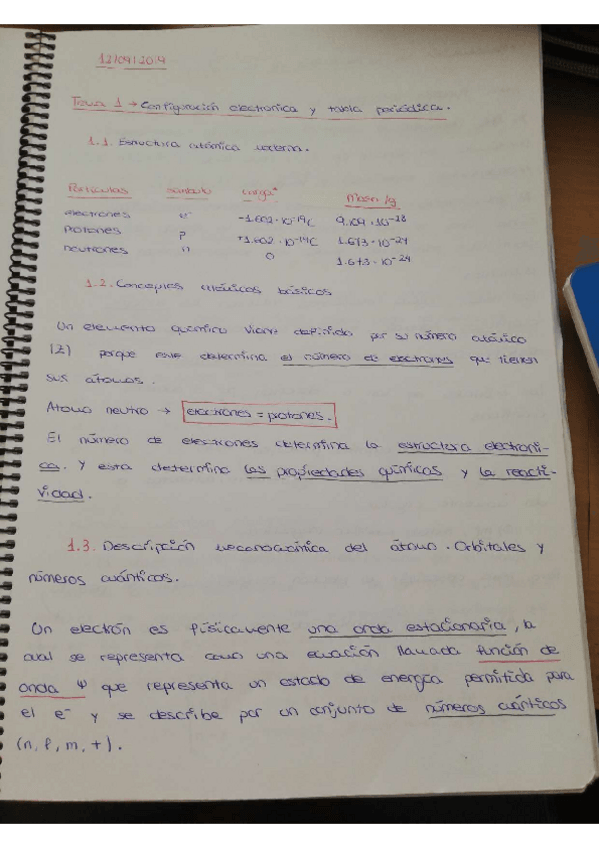 12/09/2019
Tema 1 → Configuración electrónica y tabla periódica.
1.1. Estructura atómica moderna.
Partículas símbolo carga Masa/g
electrones e⁻ -1.602·10⁻¹⁹C 9.109·10⁻²⁸
protones p +1.602·10⁻¹⁹C 1.673·10⁻²⁴
neutrones n 0 1.673·10⁻²⁴
1.2. Conceptos atómicos básicos
Un elemento químico viene definido por su número atómico
(Z) porque este determina el número de electrones que tienen
sus átomos.
Átomo neutro → electrones = protones.
El número de electrones determina la estructura electróni-
ca. Y esta determina las propiedades químicas y la reacti-
vidad.
1.3. Descripción mecanocuántica del átomo. Orbitales y
números cuánticos.
Un electrón es físicamente una onda estacionaria, la
cual se representa como una ecuación llamada función de
onda Ψ que representa un estado de energía permitida para
el e⁻ y se describe por un conjunto de números cuánticos
(n, l, m, +).